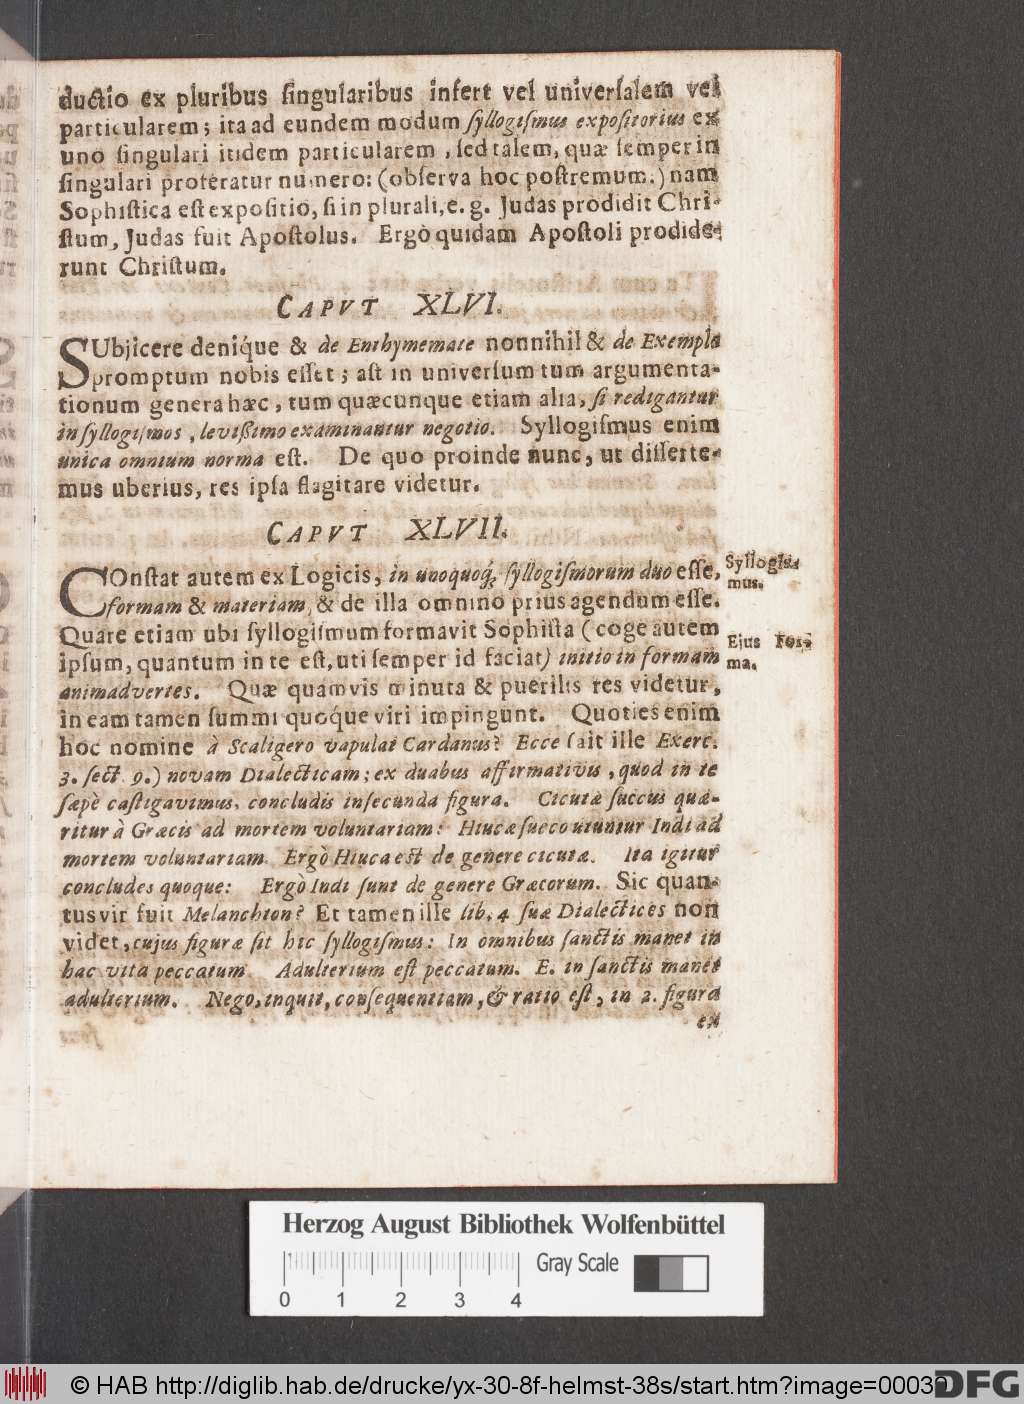 ductio ex pluribus ſingularibus infert vel univerſalem vel
particularem; ita ad eundem modum ſyllogiſmus expoſitorius ex
uno ſingulari itidem particularem, ſed talem, quæ ſemper in
ſingulari proferatur numero: (obſerva hoc poſtremum.) nam
Sophiſtica eſt expoſitio, ſi in plurali, e. g. Judas prodidit Chri-
ſtum, Judas fuit Apoſtolus. Ergò quidam Apoſtoli prodide-
runt Chriſtum.
CAPVT XLVI.
SUbjicere deniq́ue & de Enthymemate nonnihil & de Exemplo
promptum nobis eſſet; aſt in univerſum tum argumenta-
tionum genera hæc, tum quæcunque etiam alia, ſi redigantur
in ſyllogiſmos, levißimo examinantur negotio. Syllogiſmus enim
unica omnium norma eſt. De quo proinde nunc, ut diſſerte-
mus uberius, res ipſa flagitare videtur.
CAPVT XLVII.
COnſtat autem ex Logicis, in unoquoq́; ſyllogiſmorum duo eſſe,
formam & materiam, & de illa omnino prius agendum eſſe.
Quare etiam ubi ſyllogiſmum formavit Sophiſta (coge autem
ipſum, quantum in te eſt, uti ſemper id faciat) initio in formam
animadvertes. Quæ quamvis minuta & puerilis res videtur,
in eam tamen ſummi quoq́ue viri impingunt. Quoties enim
hoc nomine à Scaligero vapulat Cardanus? Ecce (ait ille Exerc.
3. ſect. 9.) novam Dialecticam; ex duabus affirmativis, quod in te
ſæpè caſtigavimus, concludis in ſecunda figura. Cicutæ ſuccus quæ-
ritur à Græcis ad mortem voluntariam: Hiucæ ſucco utuntur Indi ad
mortem voluntariam. Ergò Hiuca eſt de genere cicutæ. Ita igitur
concludes quoque: Ergò Indi ſunt de genere Græcorum. Sic quan-
tus vir fuit Melanchton? Et tamen ille lib. 4 ſuæ Dialectices non
videt, cujus figuræ ſit hic ſyllogiſmus: In omnibus ſanctis manet in
hac vita peccatum. Adulterium eſt peccatum. E. in ſanctis manet
adulterium. Nego, inquit, conſequentiam, & ratio eſt, in 2. figura
ex
Syllogis-
mus.
Ejus For-
ma.
Herzog August Bibliothek Wolfenbüttel
Gray Scale
0 1 2 3 4
© HAB http://diglib.hab.de/drucke/yx-30-8f-helmst-38s/start.htm?image=00030
DFG